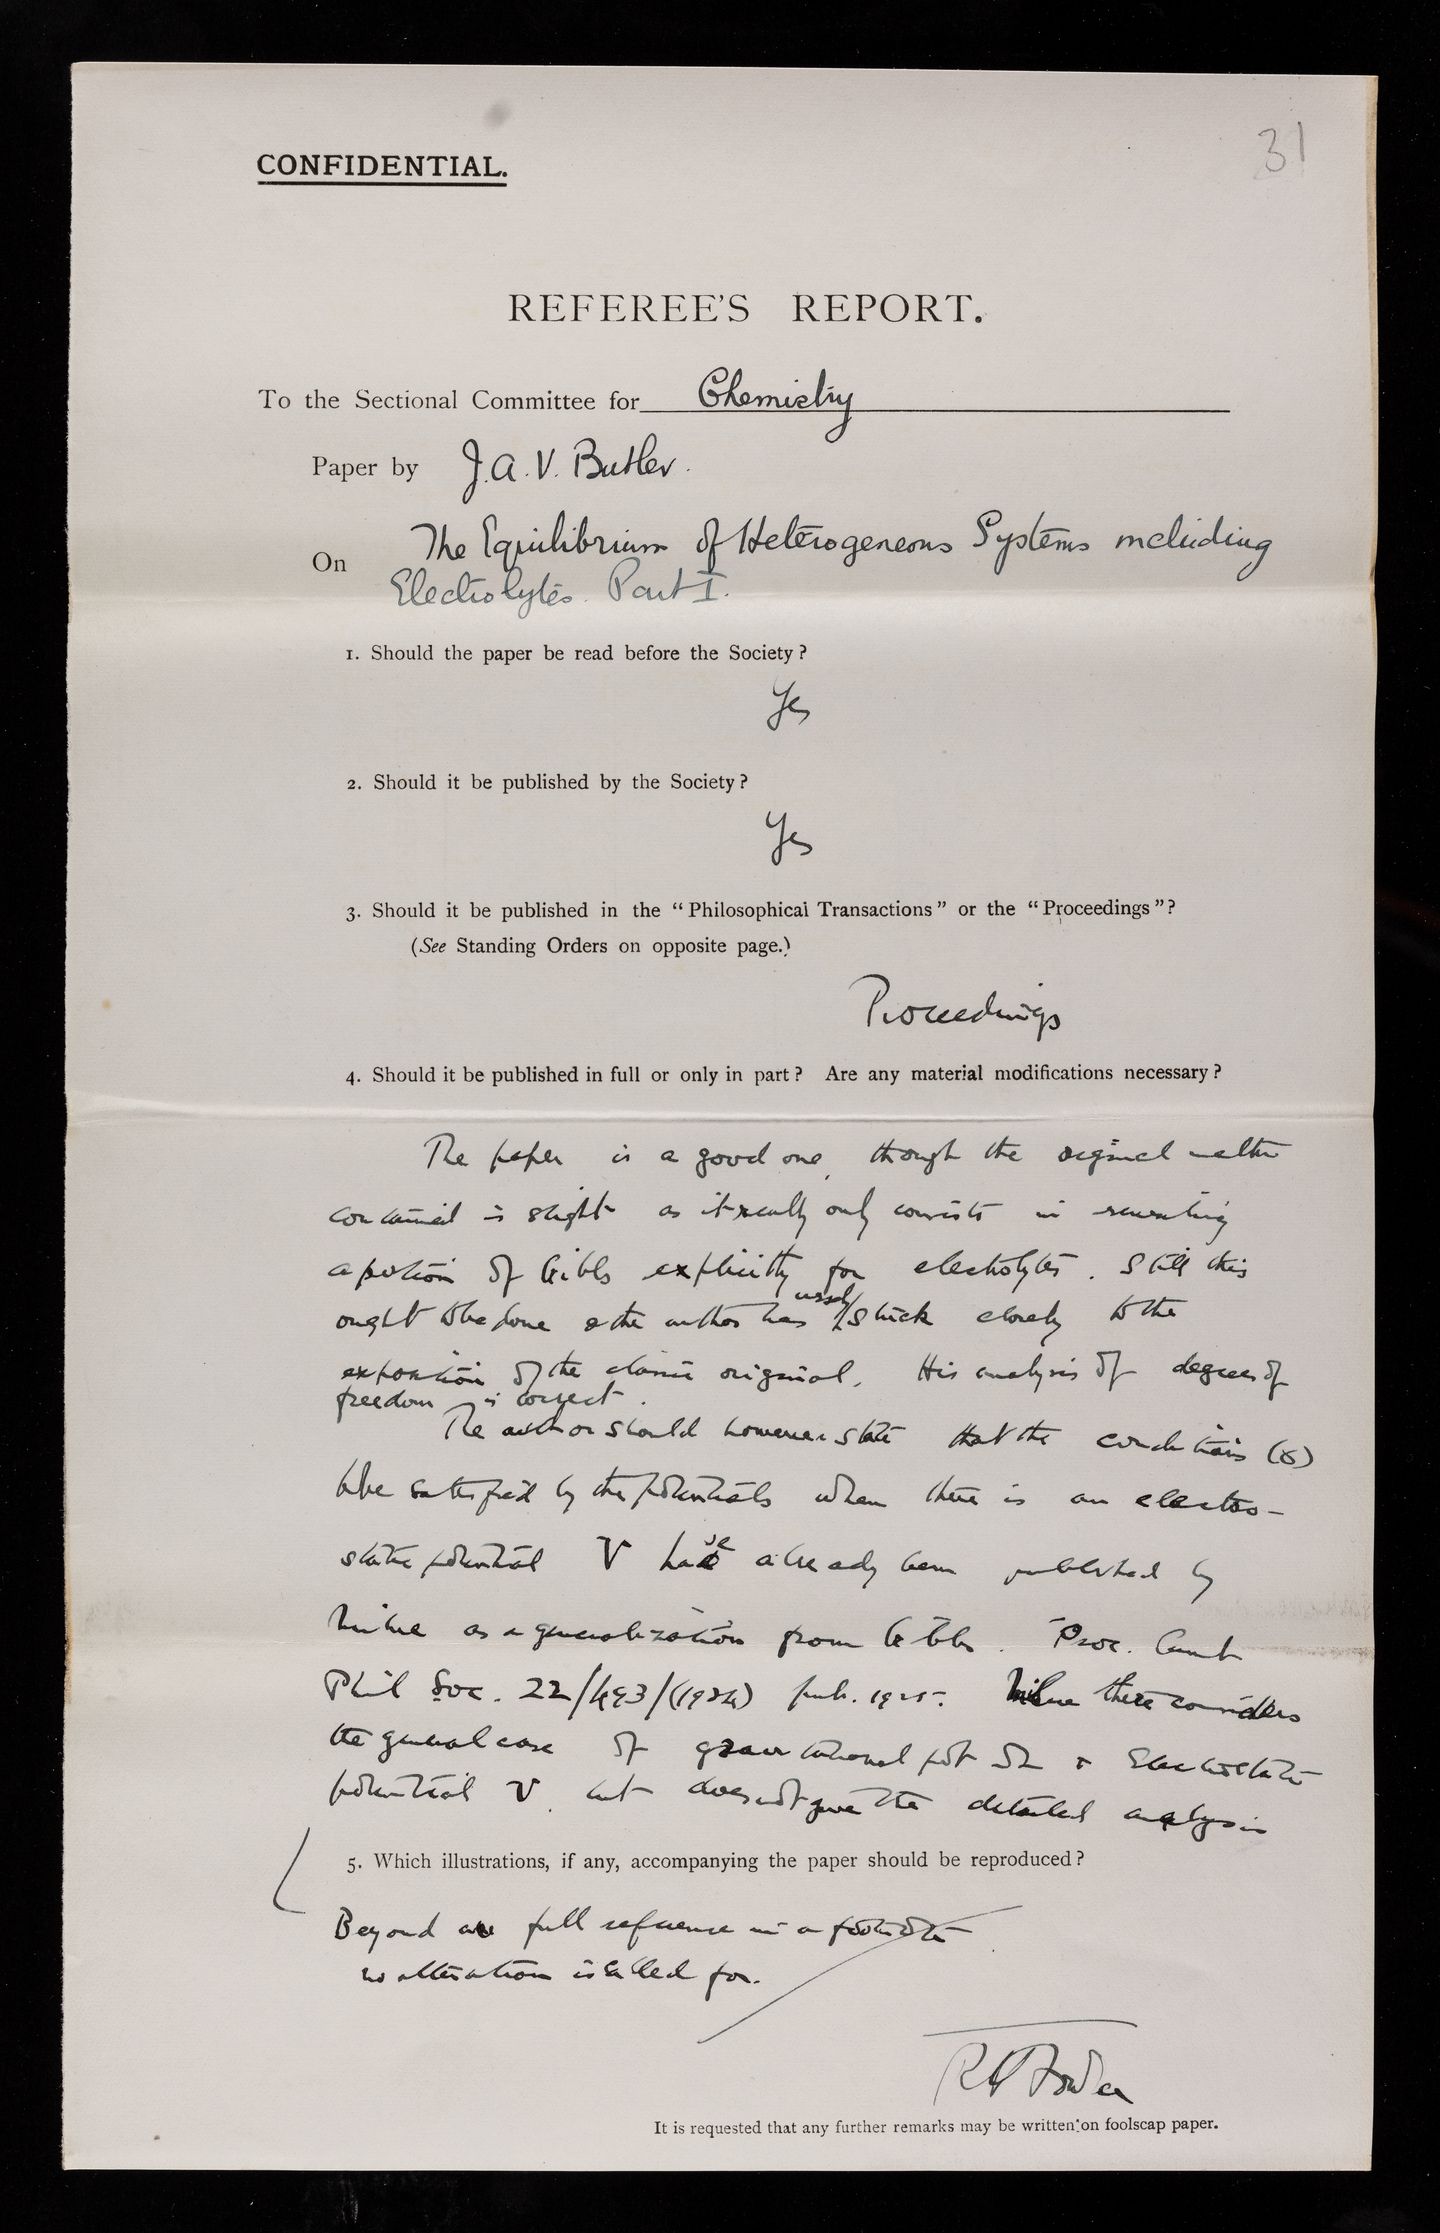 31
CONFIDENTIAL.
REFEREE'S REPORT.
To the Sectional Committee for Chemistry
Paper by J.A.V. Butler.
On The Equilibrium of Heterogeneous Systems including
Electrolytes. Part I.
1. Should the paper be read before the Society?
Yes
2. Should it be published by the Society?
Yes
3. Should it be published in the "Philosophical Transactions" or the "Proceedings"?
(See Standing Orders on opposite page.)
Proceedings
4. Should it be published in full or only in part? Are any material modifications necessary?
The paper is a good one, though the original matter
contained is slight as it really only consists in rewriting
a portion of Gibbs explicitly for electrolytes. Still this
ought to be done & the author has wisely stuck closely to the
exposition of the classic original. His analysis of degrees of
freedom is correct.
The author should however state that the conditions (8)
to be satisfied by the potentials when there is an electro-
static potential V have already been published by
Milne as a generalization from Gibbs. Proc. Camb
Phil Soc. 22/493/(1924) pub. 1925. Milne there considers
the general case of gravitational pot & Electrostatic
potential V but does not give the detailed analysis
5. Which illustrations, if any, accompanying the paper should be reproduced?
Beyond a full reference in a footnote
no alteration is called for.
RH Fowler
It is requested that any further remarks may be written on foolscap paper.